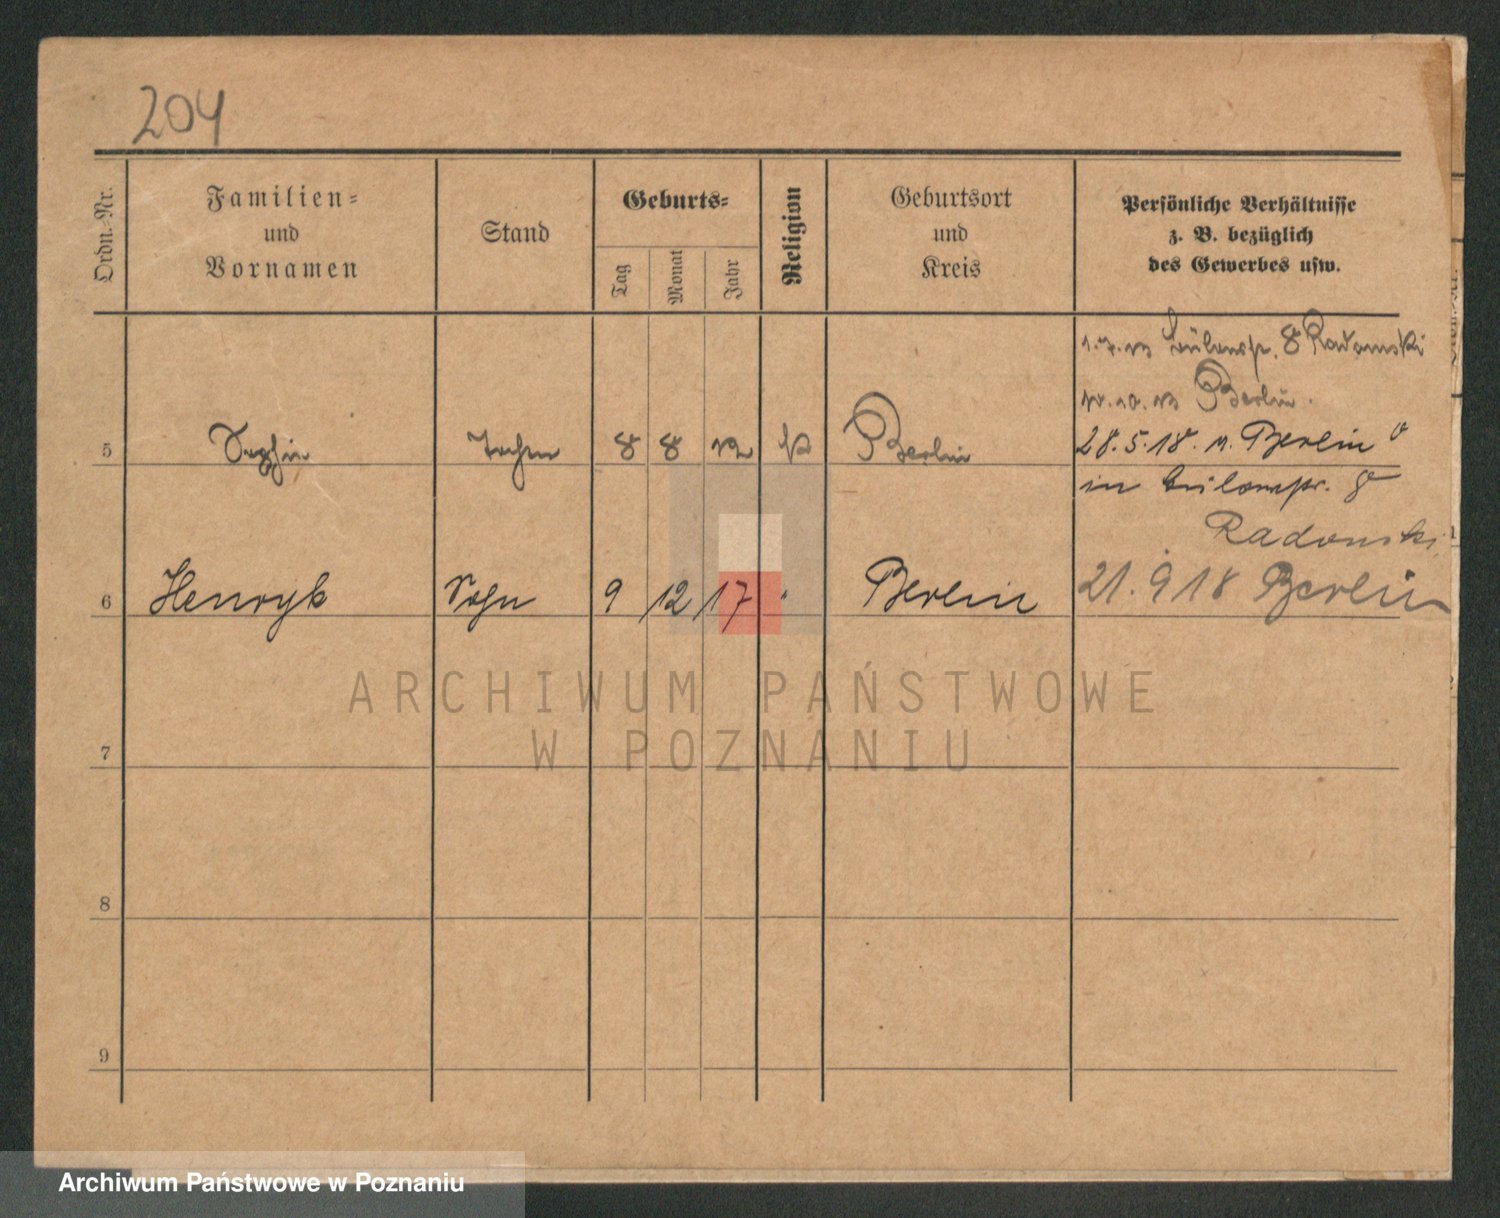 204
Ordn.-Nr.
Familien-
und
Vornamen
Stand
Geburts-
Tag
Monat
Jahr
Religion
Geburtsort
und
Kreis
Persönliche Verhältnisse
z. B. bezüglich
des Gewerbes usw.
8 Radomski
Berlin.
5 8 8 Berlin 28.5.18. n. Berlin
in 8
Radomski
6 Henryk Sohn 9 12 17 " Berlin 21.9.18 Berlin
7
8
9
ARCHIWUM PAŃSTWOWE
W POZNANIU
Archiwum Państwowe w Poznaniu